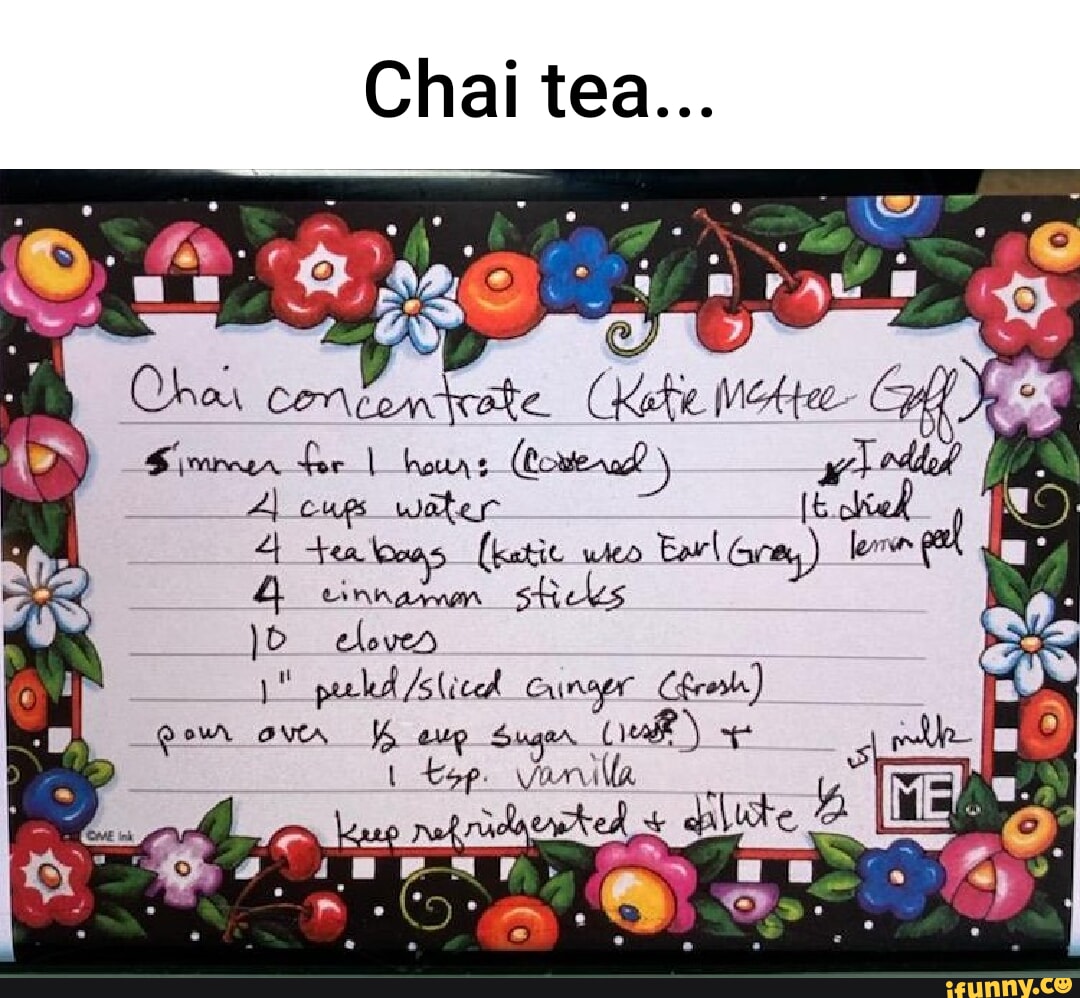 Chai tea...
Chai concentrate (Katie McAtee Goff)
Simmer for 1 hour: (Covered)
I added
1t. dried
lemon peel
4 cups water
4 tea bags (Katie uses Earl Gray)
4 cinnamon sticks
10 cloves
1" peeled/sliced Ginger (fresh)
pour over ½ cup sugar (less?) +
1 tsp. vanilla
Keep refridgerated + dilute ½
w/ milk
ME
©ME Ink
ifunny.co